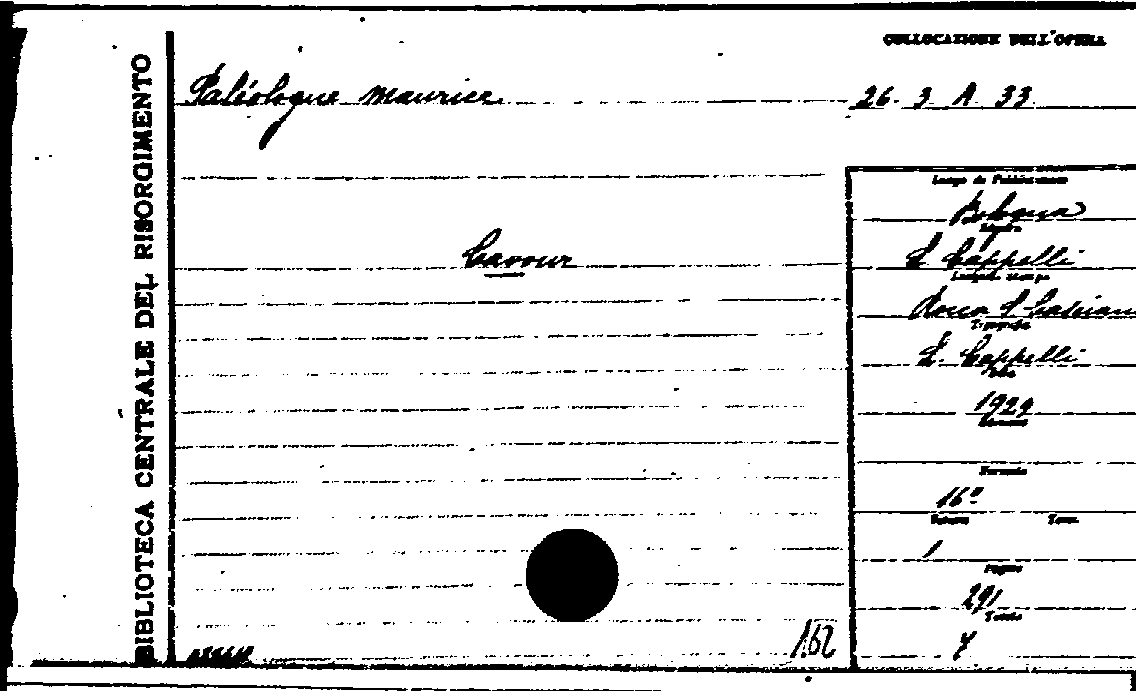 COLLOCAZIONE DELL'OPERA
BIBLIOTECA CENTRALE DEL RISORGIMENTO
Paléologue Maurice
26. 3 A 33
Luogo di Pubblicazione
Bologna
Editore
L. Cappelli
Luogo di stampa
Rocca S. Casciano
Tipografia
L. Cappelli
Cavour
1929
Formato
16º
Volume Tomo
1
Pagine
291
Tavole
7
162